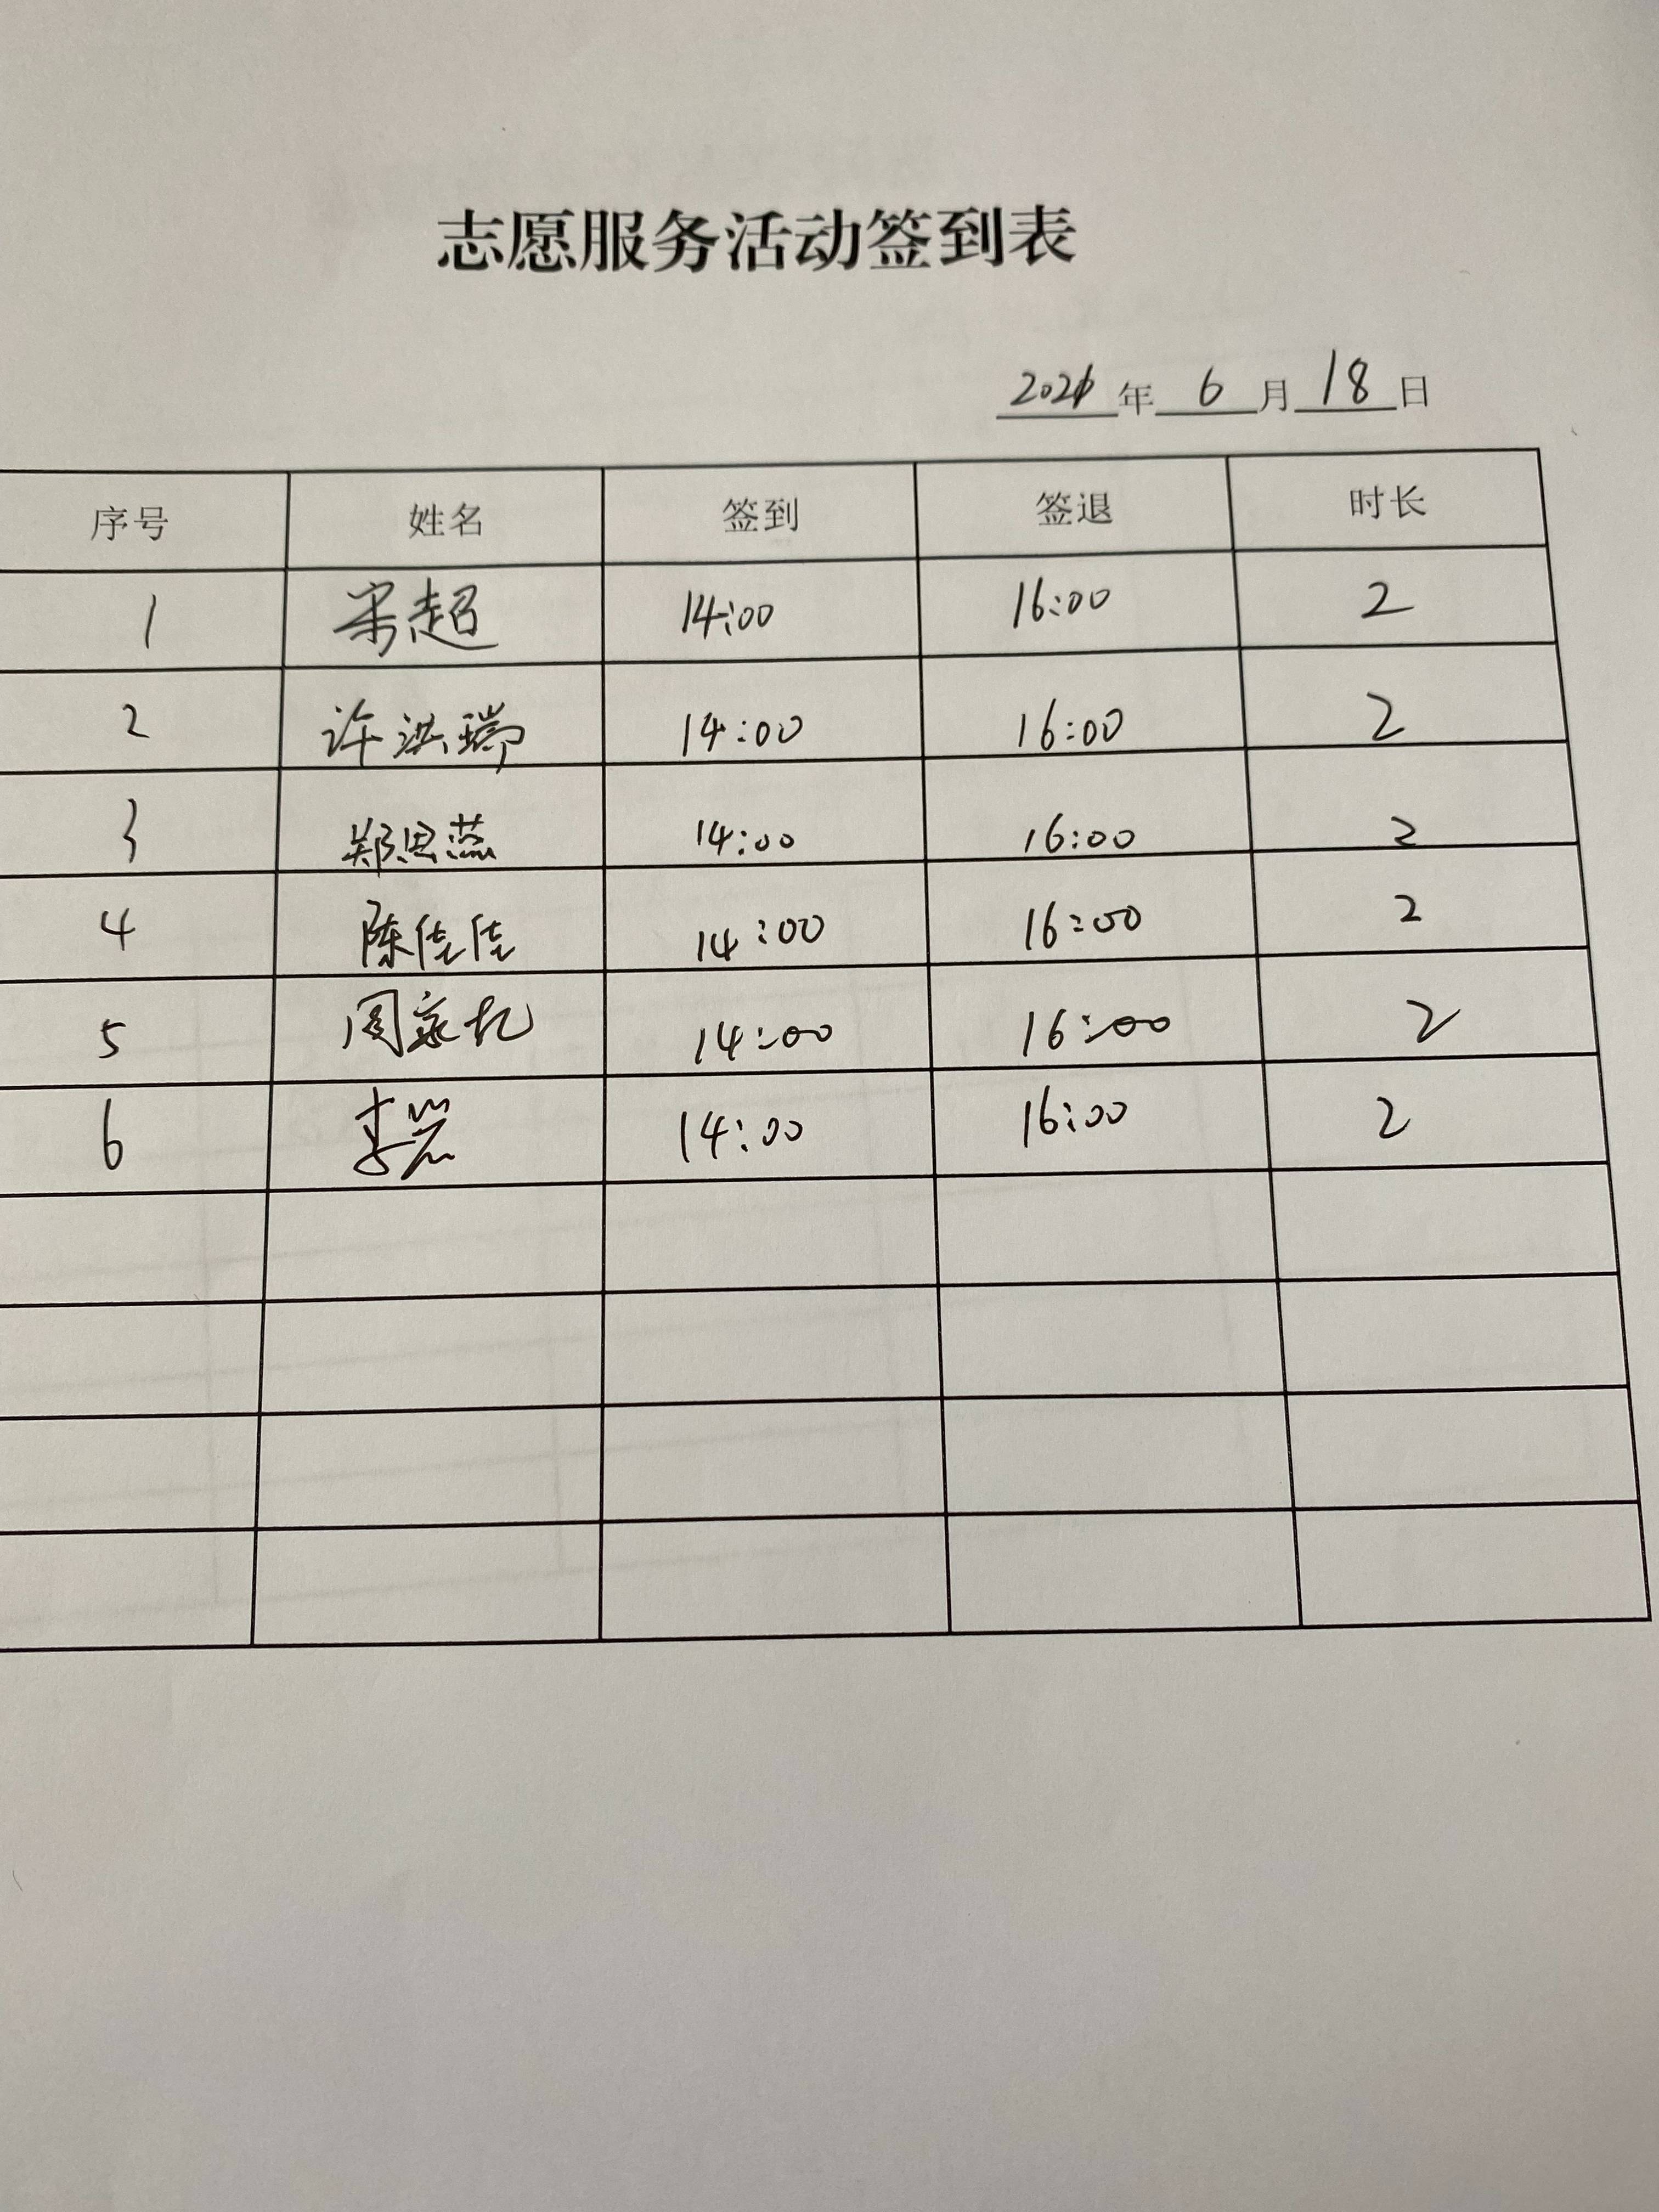 志愿服务活动签到表
2021年 6 月 18 日
序号 姓名 签到 签退 时长
1 宋超 14:00 16:00 2
2 许洪瑞 14:00 16:00 2
3 郑思蕊 14:00 16:00 2
4 陈佳佳 14:00 16:00 2
5 周 14:00 16:00 2
6 李 14:00 16:00 2